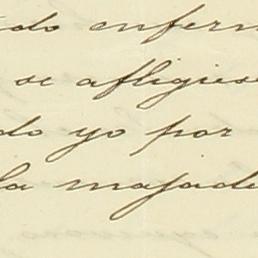 ido enferm
se afligies
do yo por
la majade